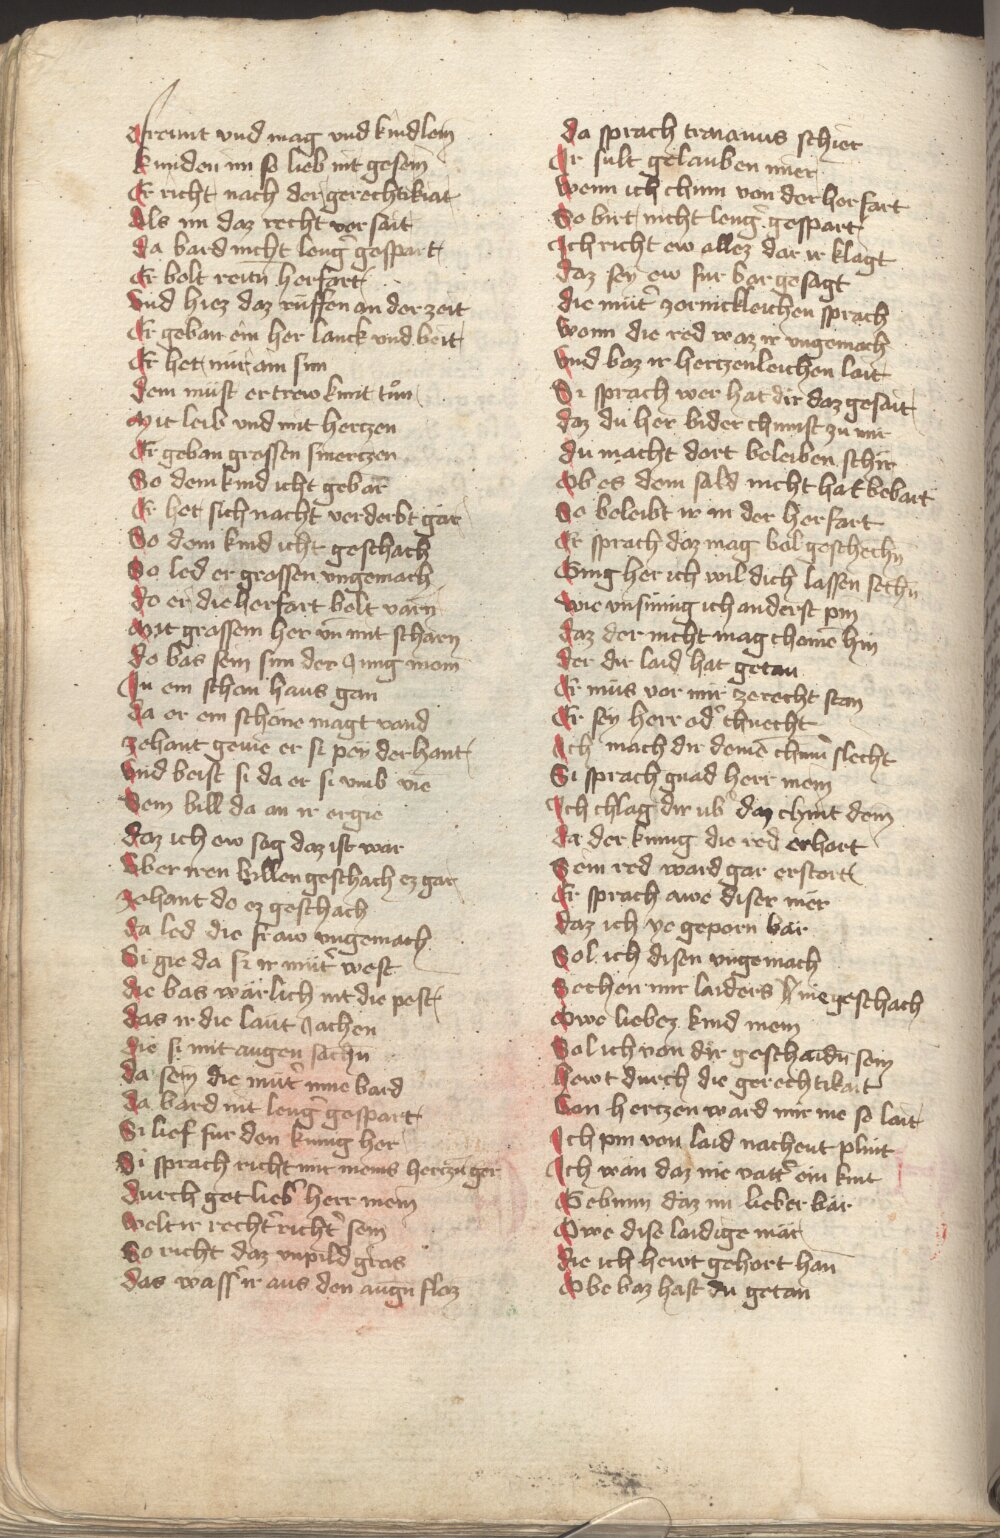 freunt vnd mag vnd kindlein
kunden im so lieb nit gesein
Er richt nach der gerechtikait
Als im daz recht vor sait
da bard nicht leng gespart
Er bolt reitn herfart
Vnd hiez daz rüffen an der zeit
Er geban ein her lanck vnd beit
Er het nür ain sun
dem müst er trew kunt tůn
Mit leib vnd mit hertzen
Er geban grossen smertzen
So dem kind icht gebar
Er het sich nacht verderbt gar
So dem kind icht geschach
So led er grossen vngemach
do er die herfart bolt varn
Mit grassem her vn̄ mit scharn
do bas sein sun der Jung man
In ein schon haus gan
da er ein schöne magt vand
zehant genie er si pey der hant
Vnd beist si da er si vmb vie
Sein bill da an ir ergie
daz ich ew sag daz ist war
Vber iren billen geschach ez gar
zehant do ez geschach
da led die fraw vngemach
Si gie da si ir mut̾ west
die bas wärlich nit die pest
das ir die laüt Jachen
die si mit augen sachn̄
da sein die müt̾ inne bard
da bard nit leng̾ gespart
Si lief fur den kunig her
Si sprach richt mir meins hertzn ger
durch got lieb̾ herr mein
welt ir recht̾ richt̾ sein
So richt daz vnpild gros
das wass̾ ir aus den augn̄ floz
da sprach traianus schier
Ir sült gelauben mier
wenn ich chum von der herfart
So birt nicht leng̾ gespart
Ich richt ew allez dar ir klagt
daz sey ew fur bar gesagt
die müt̾ zornickleichen sprach
wann die red waz ir vngemach
Vnd baz ir hertzenleichen lait
Si sprach wer hat dir daz gesait
daz du her bider chumst zu mir
du macht dort beleiben schir
Ob es dem säld nicht hat bebart
So beleibt ir in der herfart
Er sprach daz mag bol geschechn̄
Ging her ich wil dich lassen sechn̄
wie vnsinnig ich anderst pin
daz der nicht mag chome hin
der dir laid hat getan
Er müs vor mir ze recht stan
Er sey herr od̾ chnecht
Ich mach dir deinē chum̄ slecht
Si sprach gnad herr mein
Ich chlag dir üb̾ daz chint dein
da der kunig die red erhort
Sein red ward gar erstort
Er sprach awe diser mer
daz ich ye geporn bär
Sol ich disen vngemach
Sechen mir laiders nie geschach
Owe liebez kind mein
Sol ich von dir geschaidn̄ sein
hewt durch die gerechtikait
Von hertzen ward mir nie so lait
Ich pin von laid nachent plint
Ich wän daz nie vatt̾ ein kint
Gebunn daz im lieber bär
Owe dise laidige mär
die ich hewt gehort han
Obe baz hast du getan